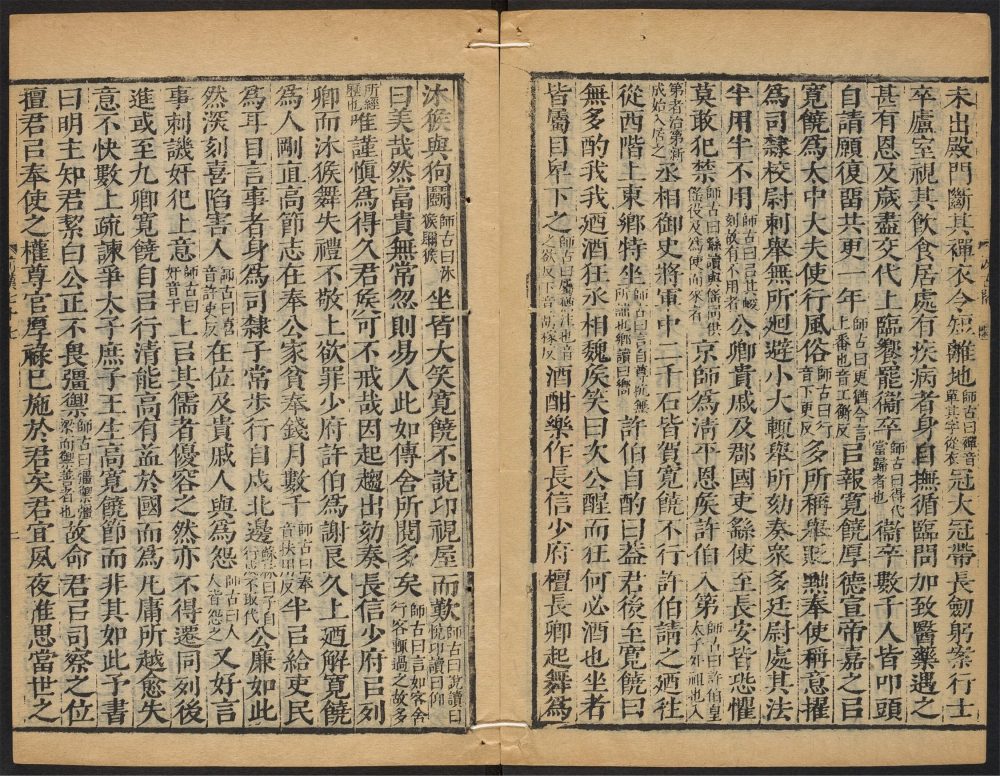 未出殿門斷其襌衣令短離地師古曰襌音單其字從衣冠大冠帶長劒躬案行士
卒廬室視其飲食居處有疾病者身自撫循臨問加致醫藥遇之
甚有恩及歲盡交代上臨饗罷衞卒師古曰得代當歸者也衞卒數千人皆叩頭
自請願復畱共更一年師古曰更猶今言上番也音工衡反㠯報寬饒厚德宣帝嘉之㠯
寬饒為太中大夫使行風俗師古曰行音下更反多所稱舉貶黜奉使稱意擢
為司隸校尉刺舉無所迴避小大輒舉所劾奏衆多廷尉處其法
半用半不用師古曰言其峻刻故有不用者公卿貴戚及郡國吏繇使至長安皆恐懼
莫敢犯禁師古曰繇讀與傜同供傜役及為使而來者京師為淸平恩矦許伯入第師古曰許伯皇太子外祖也入
第者治第新成始入居之丞相御史將軍中二千石皆賀寬饒不行許伯請之廼往
從西階上東鄉特坐師古曰言自尊抗無所詘也鄉讀曰嚮許伯自酌曰盖君後至寬饒曰
無多酌我我廼酒狂丞相魏矦笑曰次公醒而狂何必酒也坐者
皆屬目卑下之師古曰屬猶注也音之欲反下音胡稼反酒酣樂作長信少府檀長卿起舞為
沐猴與狗鬭師古曰沐猴獼猴坐皆大笑寬饒不說卬視屋而歎師古曰說讀曰悅卬讀曰仰
曰美哉然富貴無常忽則易人此如傳舍所閱多矣師古曰言如客舍行客輒過之故多
所經歷也唯謹慎為得久君矦可不戒哉因起趨出劾奏長信少府㠯列
卿而沐猴舞失禮不敬上欲罪少府許伯為謝良久上廼解寬饒
為人剛直高節志在奉公家貧奉錢月數千師古曰奉音扶用反半㠯給吏民
為耳目言事者身為司隸子常步行自戍北邊蘇林曰子自行戍不取代公廉如此
然深刻喜陷害人師古曰喜音許吏反在位及貴戚人與為怨師古曰人人皆怨之又好言
事刺譏奸犯上意師古曰奸音干上㠯其儒者優容之然亦不得遷同列後
進或至九卿寬饒自㠯行清能高有益於國而為凡庸所越愈失
意不快數上疏諫爭太子庶子王生高寬饒節而非其如此予書
曰明主知君絜白公正不畏彊禦師古曰彊禦彊梁而禦善者也故命君㠯司察之位
擅君㠯奉使之權尊官厚祿已施於君矣君宜夙夜惟思當世之